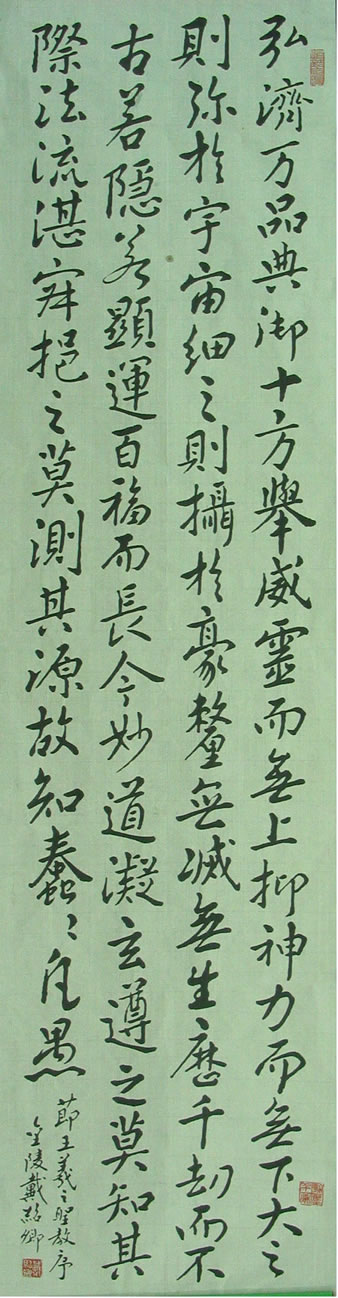 弘濟万品典御十方舉威靈而無上抑神力而無下大之
則弥於宇宙細之則攝於豪釐無滅無生歷千劫而不
古若隱若顯運百福而長今妙道凝玄遵之莫知其
際法流湛寂挹之莫測其源故知蠢〻凡愚
節王羲之聖教序
金陵戴紹卿